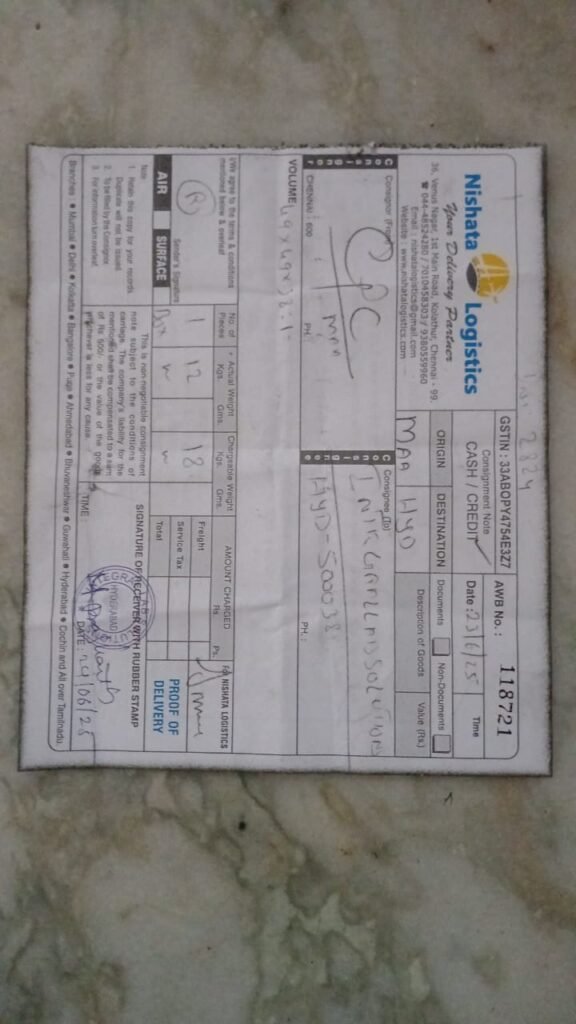 2824
Nishata Logistics
Your Delivery Partner
36, Venus Nagar, 1st Main Road, Kolathur, Chennai - 99.
☎ 044-48524280 / 7010458303 / 9380559960
Email : nishatalogistics@gmail.com
Website : www.nishatalogistics.com
GSTIN : 33ABOPY4754E3Z7
Consignment Note
CASH / CREDIT
AWB No. : 118721
Date : 23/6/25
Time
ORIGIN
DESTINATION
Documents
Non-Documents
Description of Goods
Value (Rs.)
MAA
HYD
Consignor
Consignor (From)
CPC
MAA
CHENNAI : 600
PH.
Consignee
Consignee (To)
HYD - 500038
PH. :
VOLUME
I/We agree to the terms & conditions
mentioned below & overleaf
Sender's Signature
No. of
Pieces
Actual Weight
Kgs.
Gms.
Chargeable Weight
Kgs.
Gms.
AMOUNT CHARGED
Rs.
Ps.
1
12
18
Freight
Service Tax
Total
For NISHATA LOGISTICS
AIR
SURFACE
PROOF OF
DELIVERY
Note
1. Retain this copy for your records
Duplicate will not be issued
2. To be filled by the Consignor
3. For information turn overleaf.
This is non-negotiable consignment
note subject to the conditions of
carriage. The company's liability for the
mentioned shall be compensated to a sum
of Rs. 500/- or the value of the goods
whichever is less for any cause.
SIGNATURE OF RECEIVER WITH RUBBER STAMP
TIME
HYDERABAD
DATE : 24/06/25
Branches : ● Mumbai ● Delhi ● Kolkata ● Bangalore ● Puga ● Ahmedabad ● Bhuvaneshwar ● Guwahati ● Hyderabad ● Cochin and All over Tamilnadu.